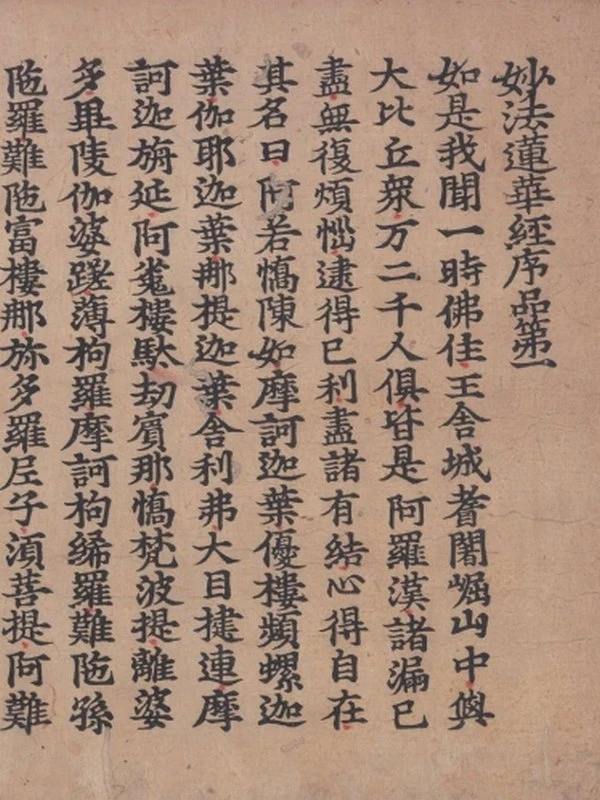 妙法蓮華經序品第一
如是我聞一時佛住王舍城耆闍崛山中與
大比丘衆万二千人俱皆是阿羅漢諸漏已
盡無復煩惱逮得己利盡諸有結心得自在
其名曰阿若憍陳如摩訶迦葉優樓頻螺迦
葉伽耶迦葉那提迦葉舍利弗大目揵連摩
訶迦旃延阿㝹樓馱劫賓那憍梵波提離婆
多畢陵伽婆蹉薄拘羅摩訶拘絺羅難陁孫
陁羅難陁富樓那弥多羅尼子湏菩提阿難